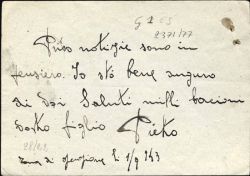 G 2 C5
2371/77
Privo notizie sono in
pensiero. Io stó bene auguro
di Voi Saluti mille bacioni
Vostro figlio Pietro
28/22
Zona di operazione li 1/9 943